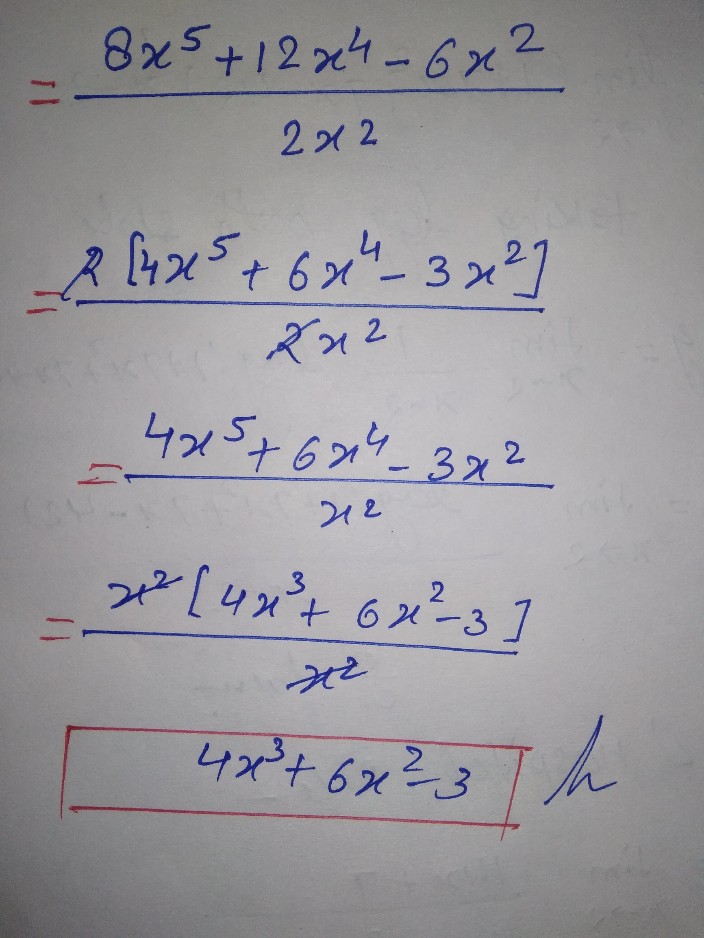 = 8x⁵ + 12x⁴ - 6x²
2x²
= 2 [4x⁵ + 6x⁴ - 3x²]
2x²
= 4x⁵ + 6x⁴ - 3x²
x²
= x² [4x³ + 6x² - 3]
x²
4x³ + 6x² - 3